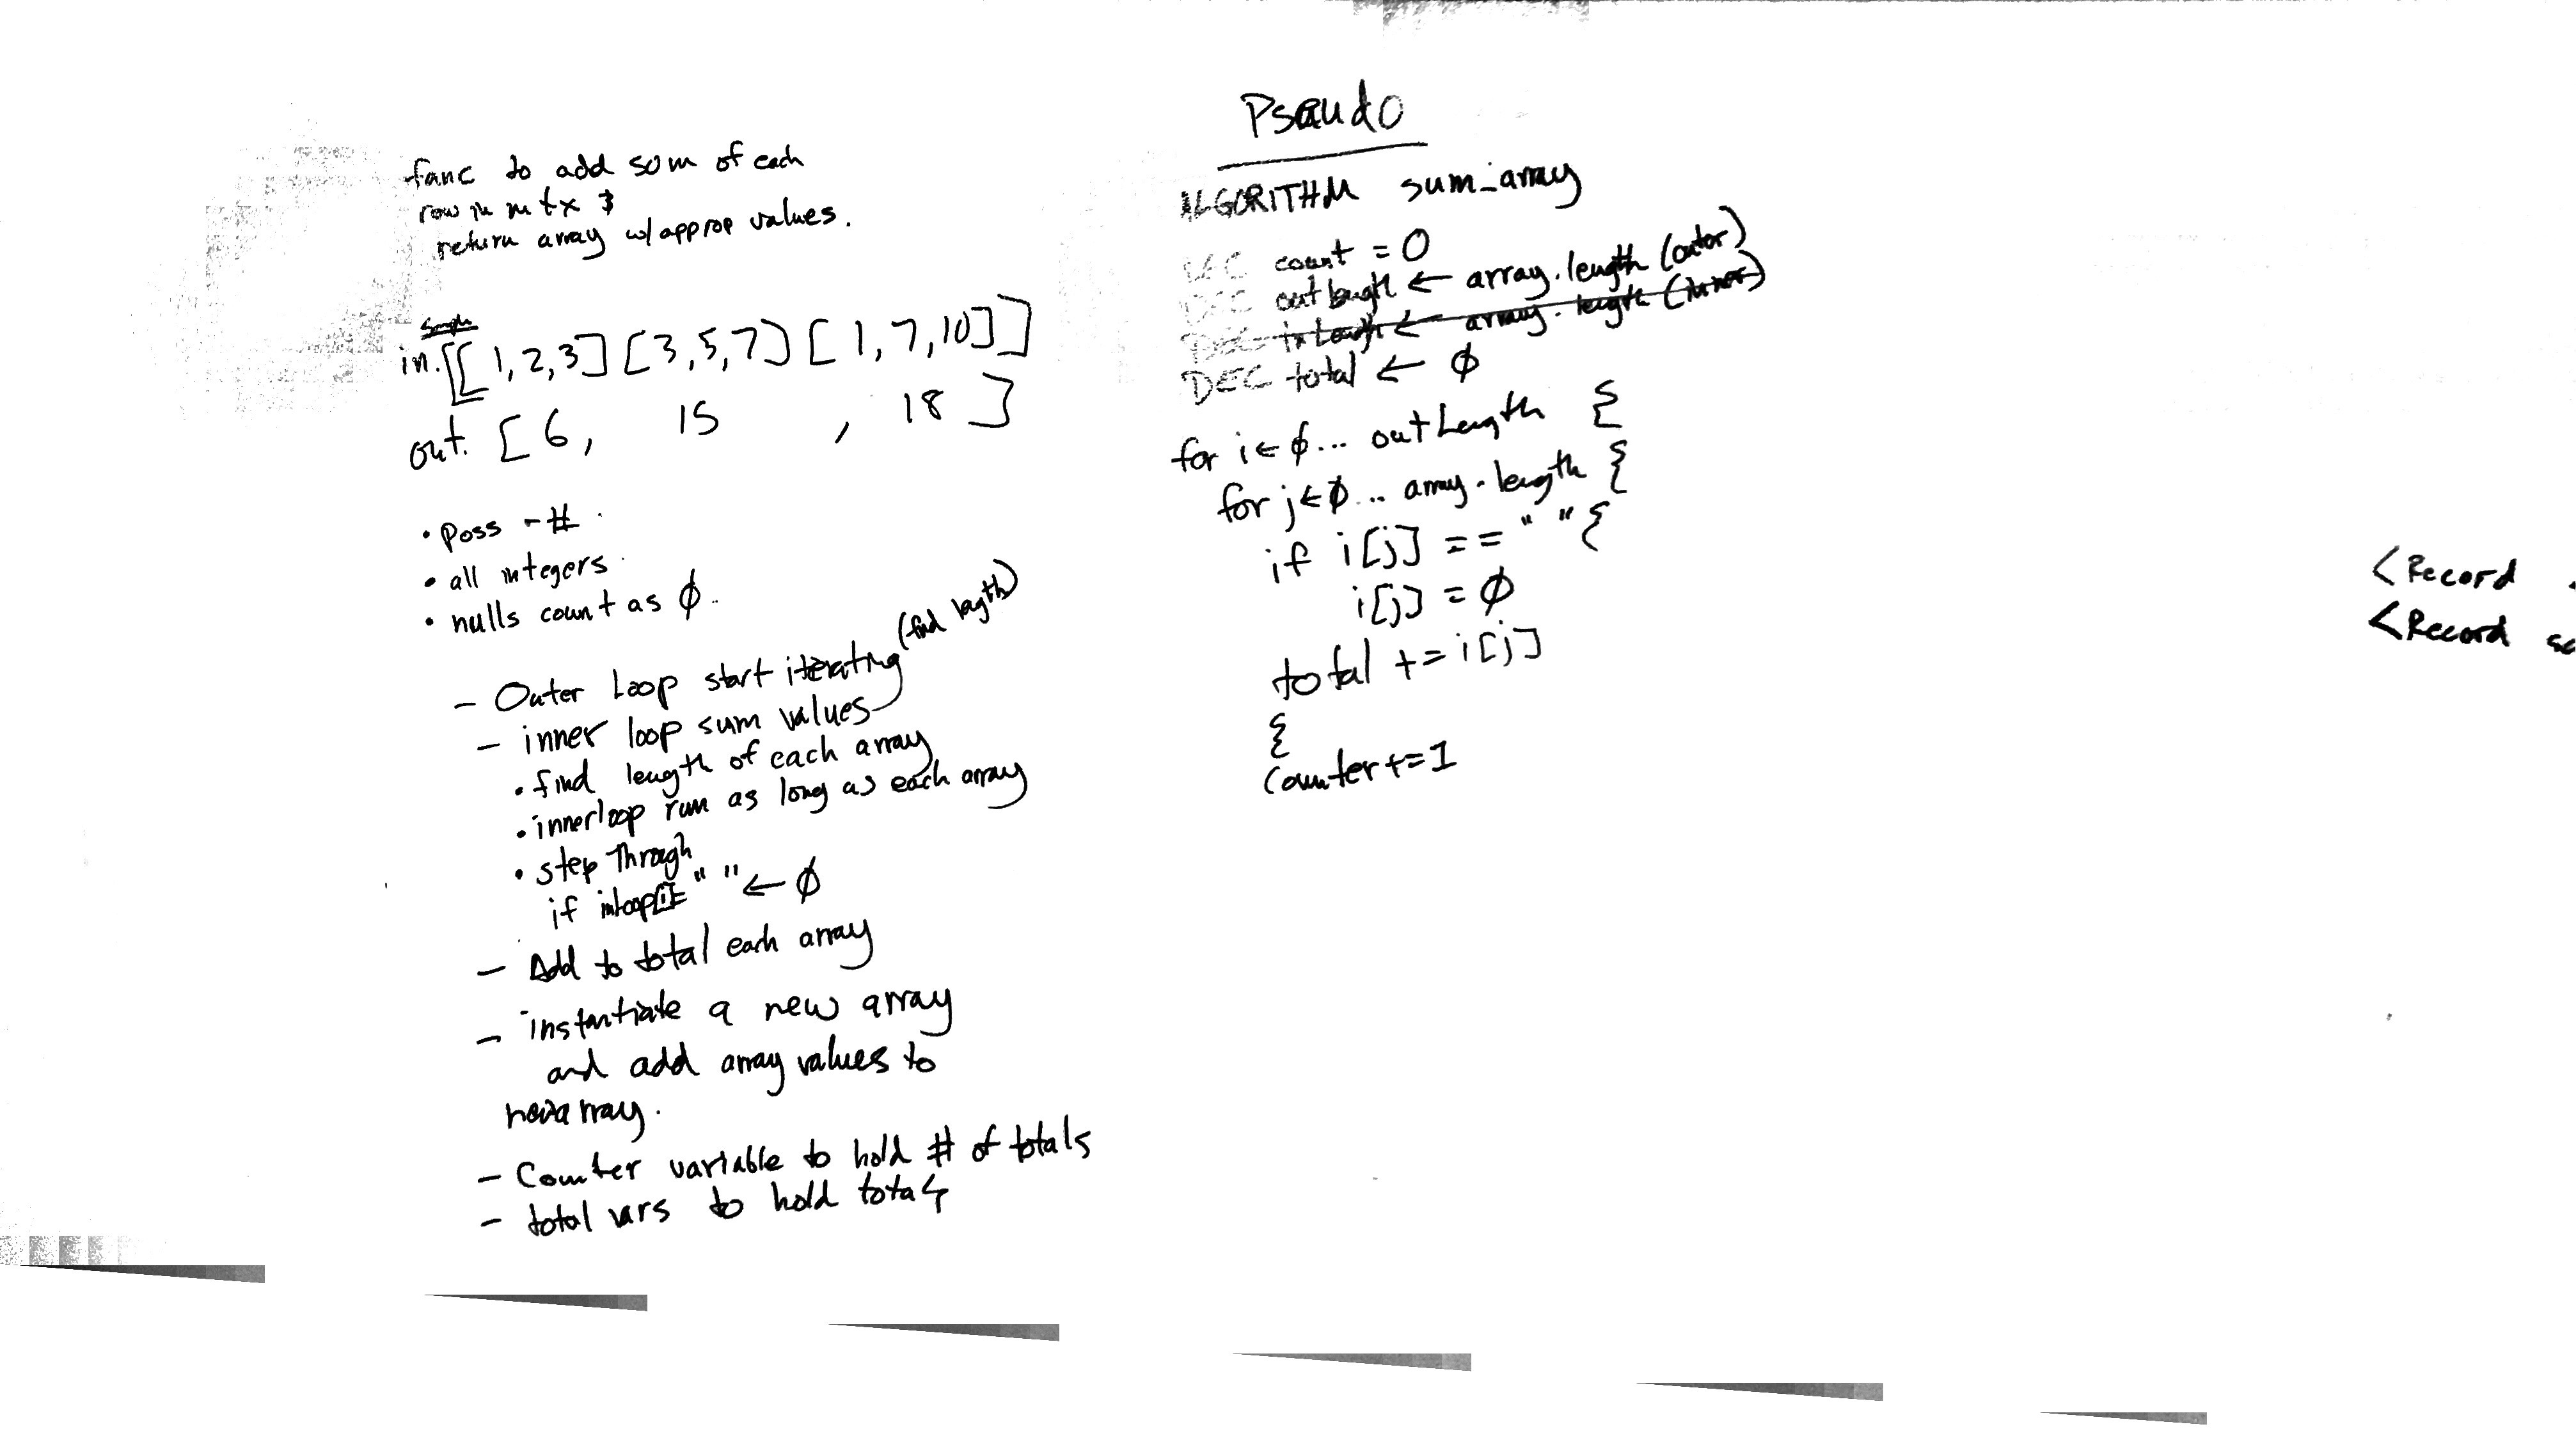 func to add sum of each
row in mtx &
return array w/approp values.
Sample
in. [[1,2,3] [3,5,7] [1,7,10]]
out. [6, 15 , 18]
• poss - #
• all integers
• nulls count as ∅
- Outer loop start iterating (find length)
- inner loop sum values
• find length of each array
• innerloop run as long as each array
• step through
if inloop[i]= " " ← ∅
- Add to total each array
- instantiate a new array
and add array values to
newarray.
- Counter variable to hold # of totals
- total vars to hold totals
Pseudo
ALGORITHM sum_array
DEC count = 0
DEC outLength ← array.length (outer)
DEC inLength ← array.length (inner)
DEC total ← ∅
for i ← ∅... outLength {
for j ← ∅... array.length {
if i[j] == " " {
i[j] = ∅
total += i[j]
{
Counter+=1
<Record
<Record sc